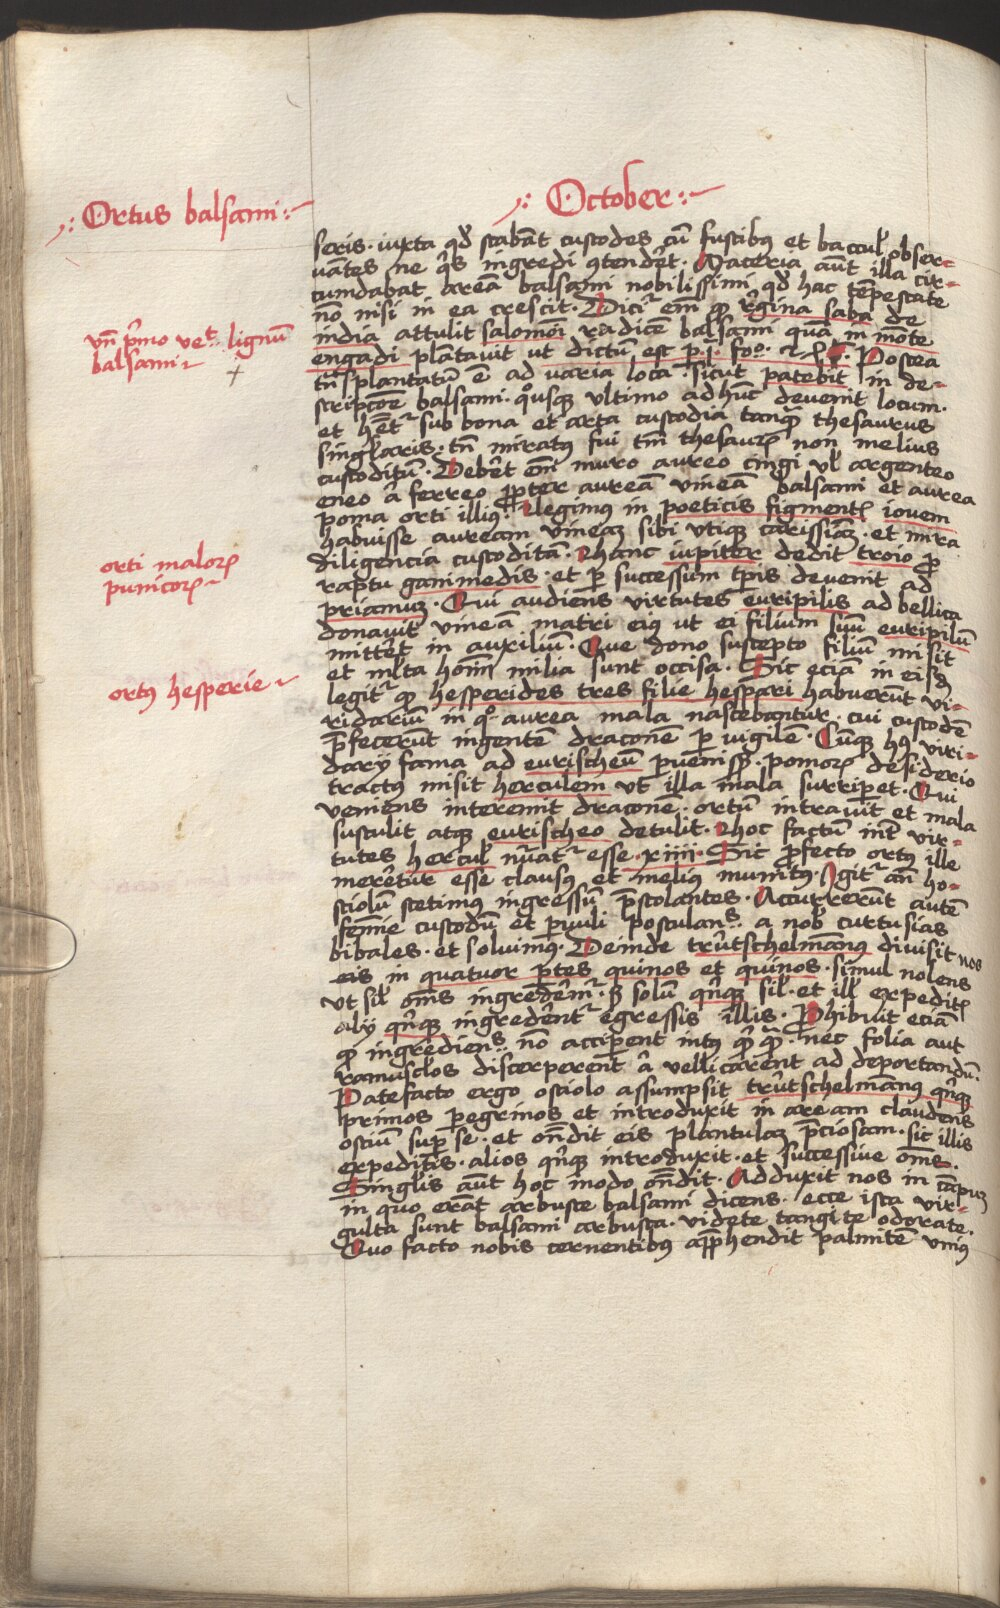 .: Ortus balsami :.
.: October :.
seris · iuxta qd̕ stabāt custodes cū fustibꝰ et baccul̕ obser-
uātes ne q̕s ingredi ꝯtendet̕ · Maceria aūt illa cir-
cumdabat areā balsami nobilissimi qd̕ hac tēpestate
nō nisi in ea crescit · Dicit̕ em̄ ꝙ r̕gina saba de
vn̄ p̕mo ve̕t lignū
balsami
india attulit salomōi radicē balsami quā in mōte
engadi plātavit ut dictū est p · j · fo̊ · Postea
tn̄ splantatū ē ad varia loca sicut patebit in de-
scripcōe balsami · qꝰusqꝫ ultimo ad hūc devenit locum ·
et hēt̕ sub bona et arta custodia tanqꝫ thesaurus
singl̕aris · tn̄ miratꝰ fui tm̄ thesaurꝫ non melius
custoditū · Deber̕t em̄ muro aureo cingi vl̕ argenteo
eneo a̕ ferreo ꝓpter aureā vineā balsami et aurea
poma orti illiꝰ · Legimus in poeticis figmentꝭ iovem
habuisse auream vineaꝫ sibi utiqꝫ carissiāꝫ · et mira
orti malorꝫ
punicorꝫ
diligencia custoditā · Hanc iupiter dedit troio ꝓ
raptu ganimedis · et ꝑ successum tp̄is devenit ad
priamuꝫ · Qui audiens virtutes euripilis ad bellica
donavit vineā matri eiꝰ ut ei filium suū euripilū
mitter̕t in auxiliū · Que dono suscepto filiū misit
et ml̕ta hoīm milia sunt occisa · Sic eciā in eisdꝫ
ortꝰ hesperie
legit̕ ꝙ hesperides tres filie hesꝑari habuerūt vi-
ridariū in qº aurea mala nascebantur · cui custodē
p̄fecerūt ingentē draconē ꝑvigilē · Cūqꝫ hꝰ viri-
darij fama ad eurischeū pvenissꝫ · pomorꝫ desiderio
tractus misit herculem ut illa mala surriperet · Qui
veniens interemit draconē · ortū intravit et mala
sustulit atqꝫ eurischeo detulit · Hoc factū int̕ vir-
tutes hercul̕ nūat̕ esse · xiiii · Sic ꝓfecto ortꝰ ille
meret̕ur esse clausꝰ et melius munitꝰ · Igit̕ an̄ ho-
stiolū stetimus ingressū p̄stolantes · Accurrerūt autē
femīe custodū et pvuli postulans̕ a nob̕ curtusias
bibales · et solvimꝰ · Deinde tr̕utschelmānus divisit nos
eis in quatuor ꝑtes quinos et quinos · simul nolens
ut sil̕ om̄s ingredēm̕r · sꝫ solū qn̕qꝫ sil̕ · et ill̕ expeditꝭ
alij qn̕qꝫ ingrederēnt̕ egressis illis · Phibuit eciā
ꝙ ingrediens̕ nō acciꝑent intꝰ q̕cqꝫ · nec folia aut
ramusclos discerperent a̕ vellicarent ad deportandū ·
Patefacto ergo ostiolo assumpsit tr̕utschelmānus qn̕qꝫ
primos ꝑegrinos et introduxit in aream claudens
ostiū suꝑ se · et on̄dit eis plantulaꝫ p̄ciosam · sic illis
expeditis · alios qn̕qꝫ introduxit · et successive om̄s ·
Singl̕is aūt hoc modo on̄dit · Adduxit nos in cāpuꝫ
in quo erāt arbuste balsami dicens · ecce ista vir-
gulta sunt balsami arbusta · videte tangite odorate ·
Quo facto nobis cernentibꝰ app̄hendit palmitē vniꝰ